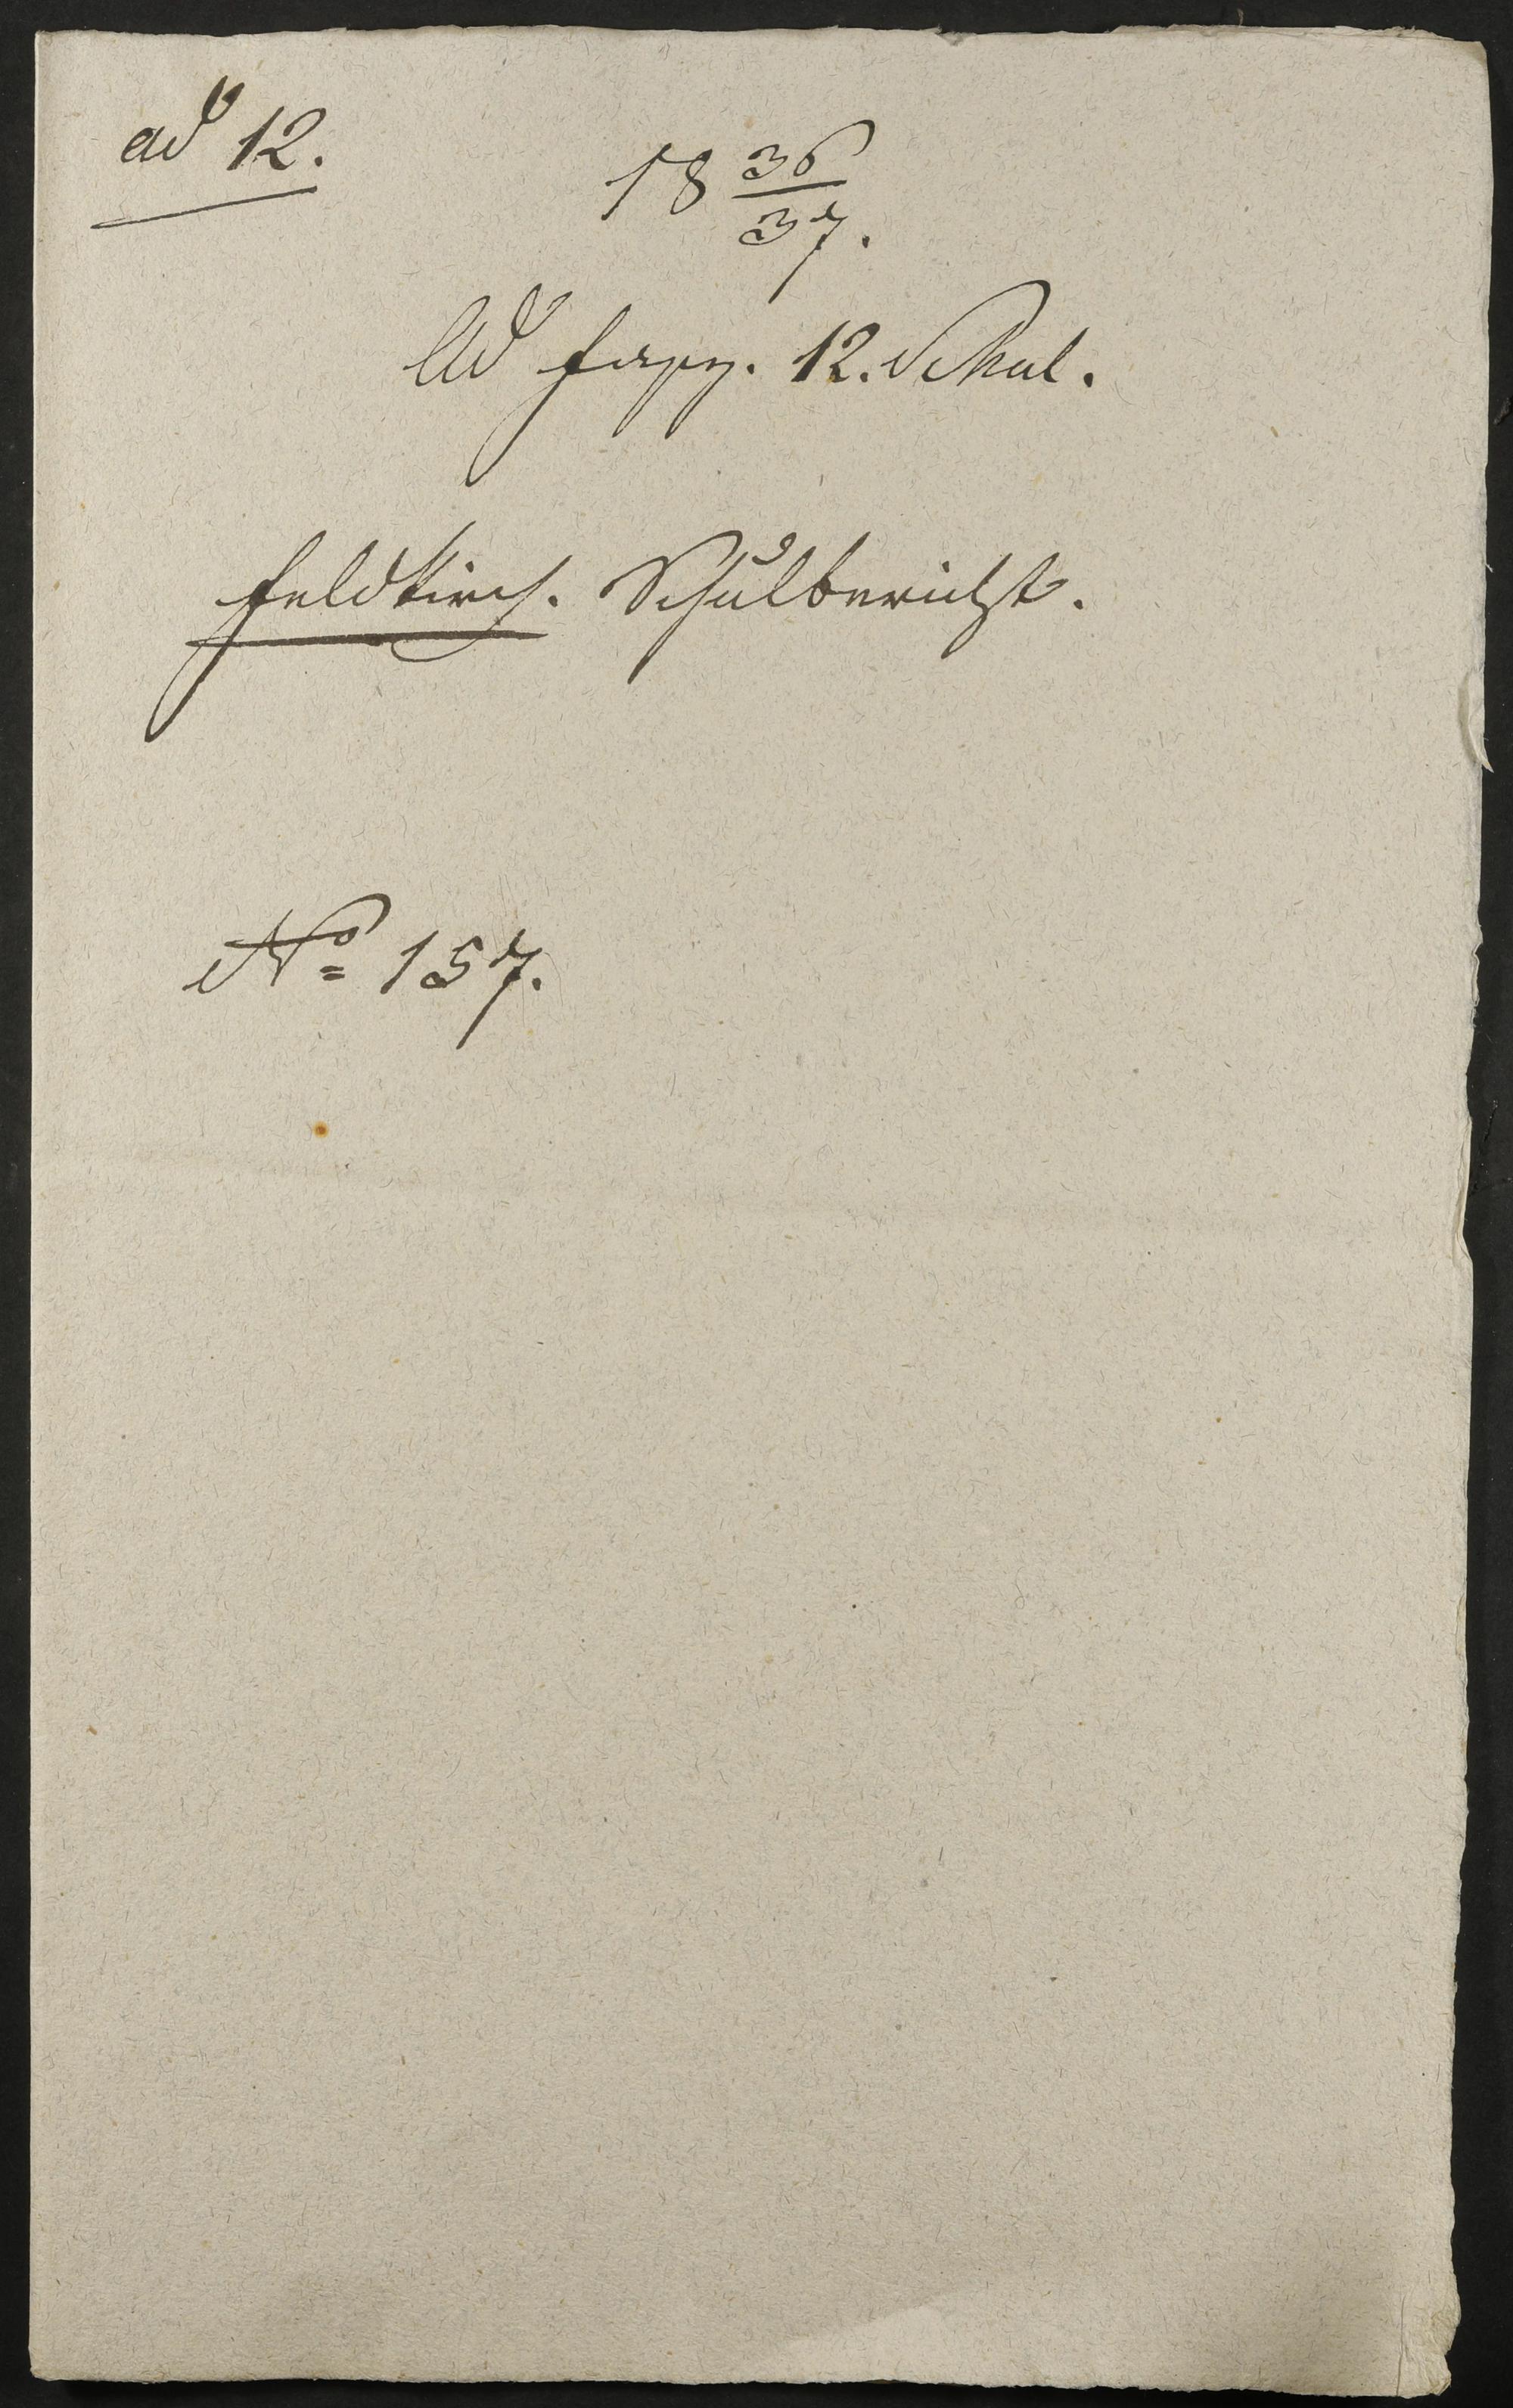 ad 12.
18 36/37.
Ad fasz. 12. Schul.
Feldkirch. Schulbericht.
No 157.